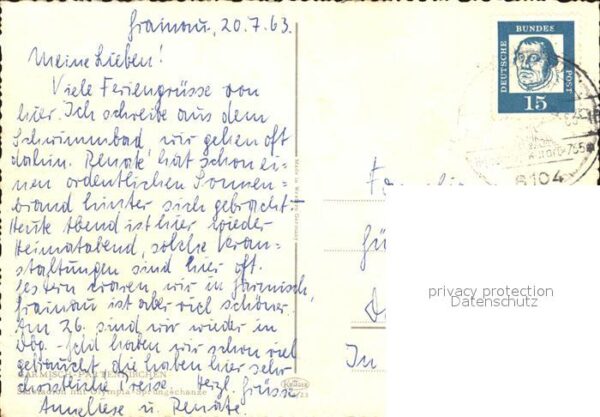 Grainau, 20.7.63.
Meine Lieben!
Viele Feriengrüsse von
hier. Ich schreibe aus dem
Schwimmbad, wir gehen oft
dahin. Renate hat schon ei-
nen ordentlichen Sonnen-
brand hinter sich gebracht.
Heute Abend ist hier wieder
Heimatabend, solche Veran-
staltungen sind hier oft.
Gestern waren wir in Garmisch,
Grainau ist aber viel schöner.
Am 26. sind wir wieder in
Geld haben wir schon viel
gebraucht, die haben hier sehr
christliche Preise. Herzl. Grüsse
Anneliese u. Renate
GARMISCH-PARTENKIRCHEN
Skistadion mit Olympia-Sprungschanze
Krüger
DEUTSCHE
BUNDES
POST
15
8104
privacy protection
Datenschutz
In